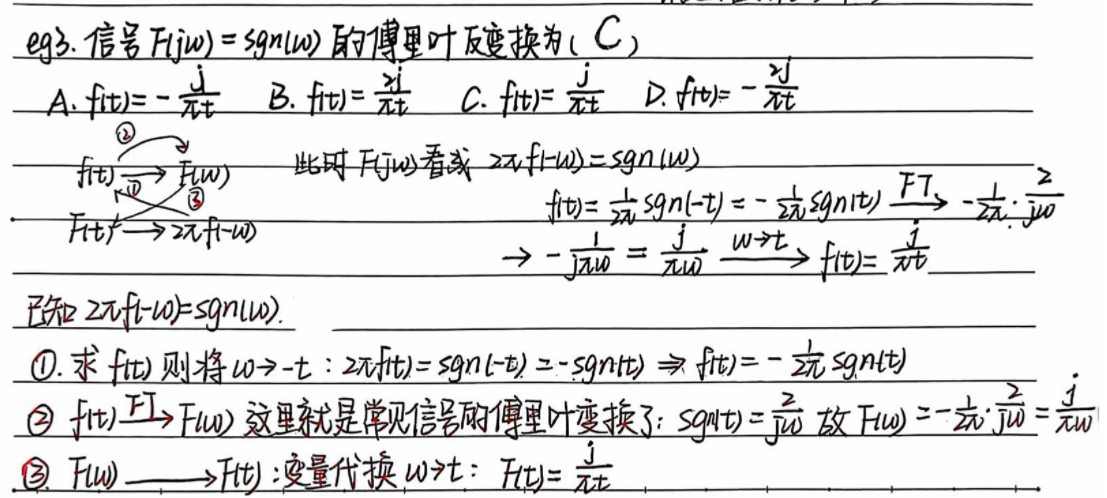 eg3. 信号 F(jω) = sgn(ω) 的傅里叶反变换为( C )
A. f(t) = - j/πt B. f(t) = 2j/πt C. f(t) = j/πt D. f(t) = - 2j/πt
② f(t) → F(ω) 此时 F(jω) 看成 2πf(-ω) = sgn(ω)
① ③
F(t) → 2πf(-ω) f(t) = 1/2π sgn(-t) = - 1/2π sgn(t) FT→ - 1/2π · 2/jω
→ - 1/jπω = j/πω ω→t→ f(t) = j/πt
已知 2πf(-ω) = sgn(ω).
①. 求 f(t) 则将 ω → -t : 2πf(t) = sgn(-t) = -sgn(t) ⇒ f(t) = - 1/2π sgn(t)
② f(t) FT→ F(ω) 这里就是常见信号的傅里叶变换了: sgn(t) = 2/jω 故 F(ω) = - 1/2π · 2/jω = j/πω
③. F(ω) → F(t) : 变量代换 ω→t : F(t) = j/πt